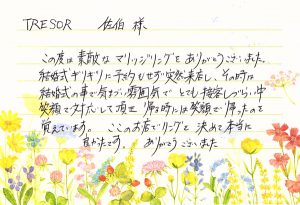 TRESOR 佐伯 様
この度は素敵なマリッジリングをありがとうございました。
結婚式ギリギリに予約もせず突然来店し、その時は
結婚式の事で気まずい雰囲気で とても接客しづらい中
笑顔で対応して頂き 帰る時には笑顔で帰ったのを
覚えています。 ここのお店でリングを決めて本当に
良かったです。 ありがとうございました